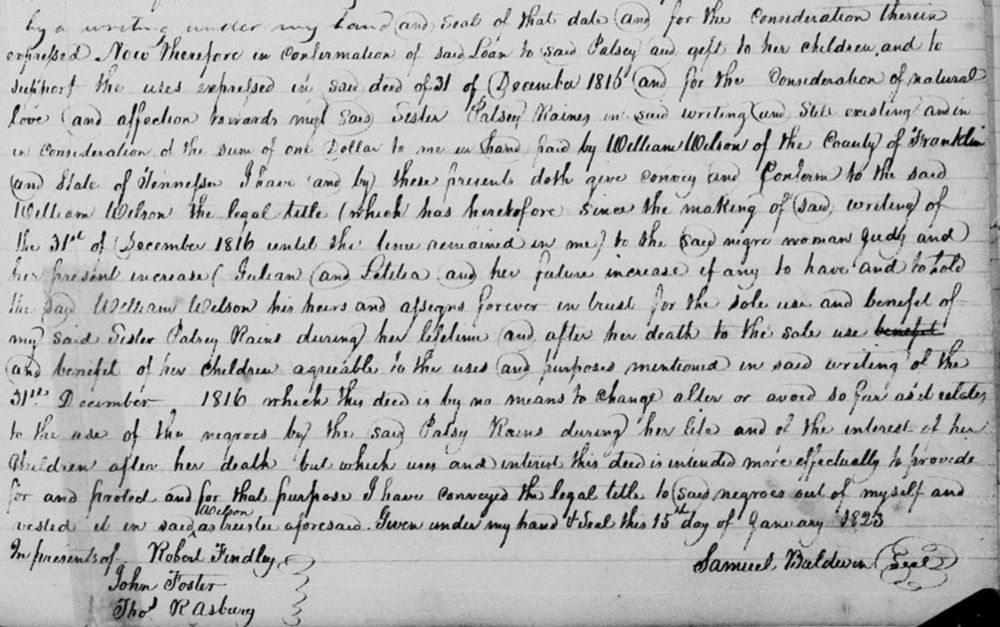 by a writing under my hand and Seal of that date and for the Consideration therein
expressed Now Therefore in Confirmation of said Loan to said Patsey and gift to her children, and to
support the uses expressed in said deed of 31 of December 1816 and for the Consideration of natural
love and affection towards my said Sister Patsey Raines in said writing and Still existing and in
in consideration of the sum of one Dollar to me in hand paid by William Wilson of the County of Franklin
and State of Tennessee I have and by these present doth give convey and Confirm to the said
William Wilson the legal title (which has heretofore since the making of said writing of
the 31st of December 1816 until the time remained in me) to the said negro woman Judy and
her present increase (Julian and Letitea and her future increase if any to have and to hold
the said William Wilson his heirs and assigns forever in trust for the sole use and benefit of
my said Sister Patsey Rains during her lifetime and after her death to the sole use benefit
and benefit of her children agreeable to the uses and purposes mentioned in said writing of the
31st December 1816 which this deed is by no means to change alter or avoid so far as it relates
to the use of the negroes by the said Patsy Rains during her life and of the interest of her
Children after her death but which uses and interest this deed is intended more effectually to provide
for and protect and for that purpose I have conveyed the legal title to said negroes out of myself and
vested it in said Wilson as trustee aforesaid. Given under my hand & Seal this 15th day of January 1823
In presents of Robert Findley Samuel Baldwin Seal
John Foster
Thos R Asbury